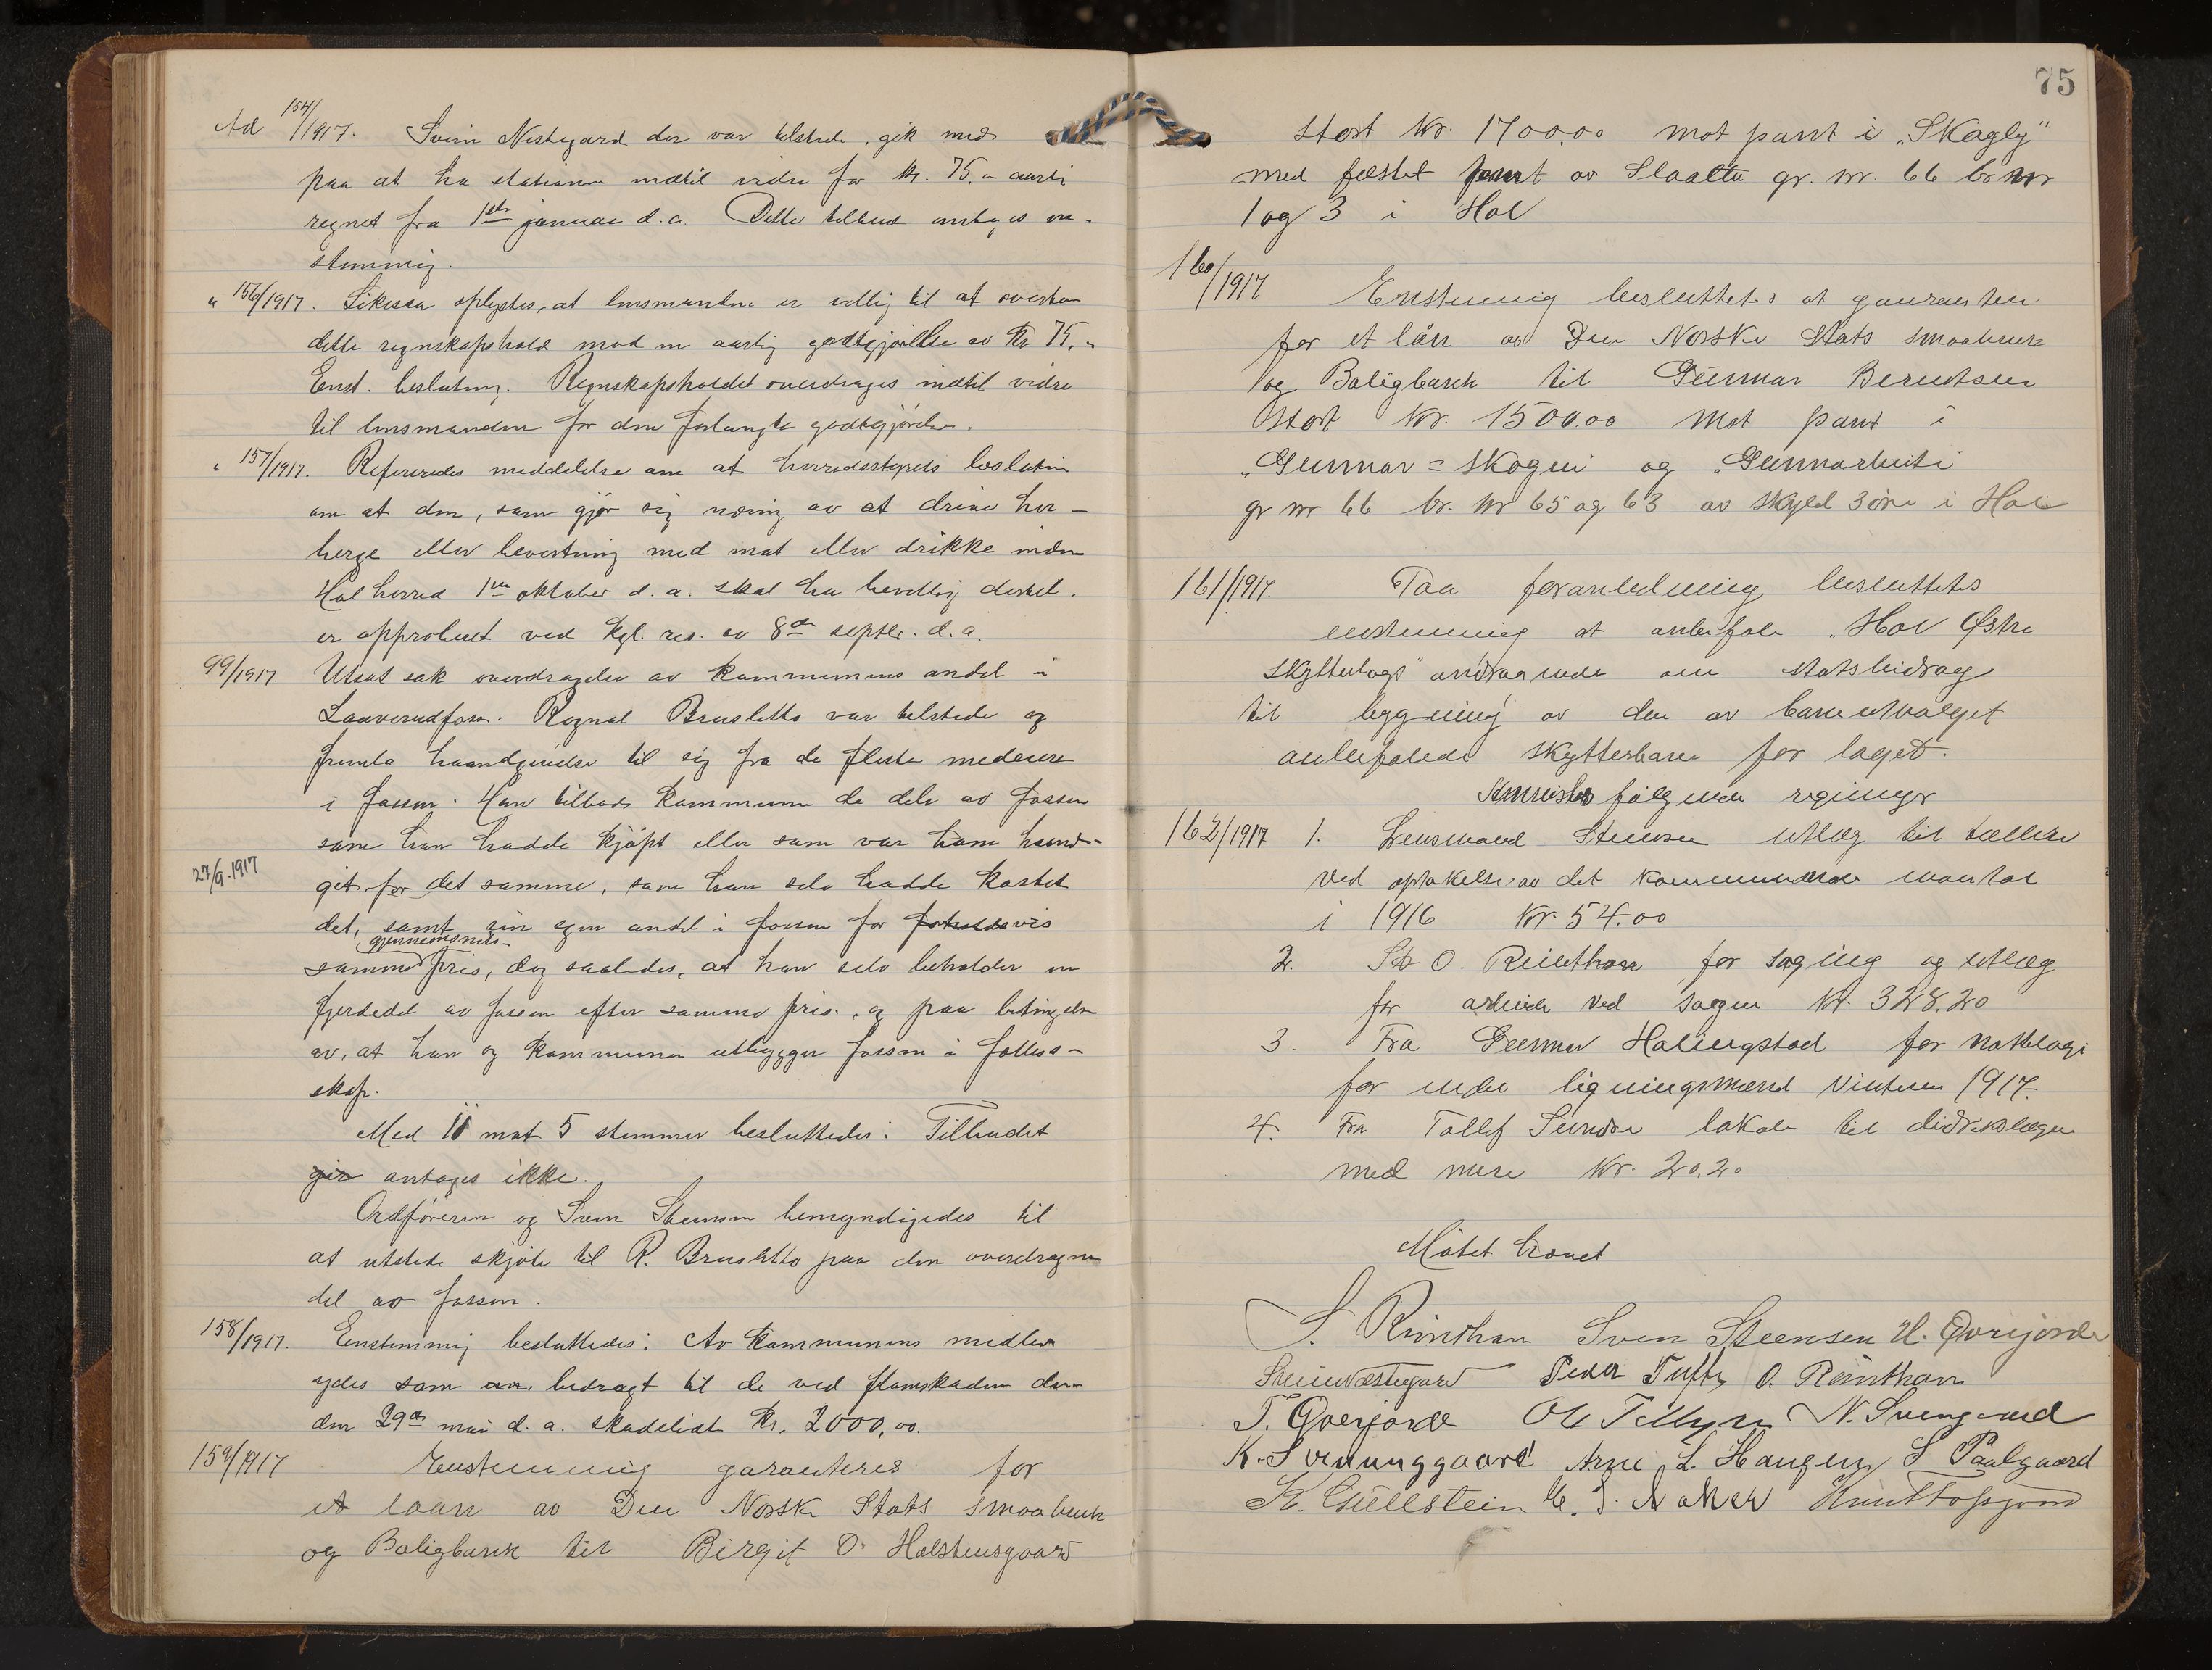 Ad 154/1917. Svein Nestegard der var tilstede, gik med
paa at ha stationen indtil vidre for kr. 75,- aarli
regnet fra 1ste januar d.a. Dette tilbud antoges en-
stemmig.
" 156/1917. Likesaa oplystes, at lensmanden er villig til at overta
dette regnskapshold mod en aarlig godtgjørelse av kr 75,-
Enst. beslutning. Regnskapsholdet overdrages indtil vidre
til lensmanden for den forlangte godtgjørelse.
" 157/1917. Refereredes meddelelse om at herredsstyrets beslutnin
om at den, som gjør sig næring av at drive her-
berge eller bevertning med mat eller drikke inden
Hol herred 1ste oktober d.a. skal ha bevilling dertil.
er approbert ved kgl. res. av 8de septbr. d.a.
99/1917 Utsat sak overdragelse av kommunens andel i
Laaverudfoss. Ragnal Brusletto var tilstede og
fremla haandgivelse til sig fra de fleste medeiere
i fossen. Han tilbød kommunen de dele av fossen
som han hadde kjøpt eller som var ham haand-
27/9-1917
git for det samme, som han selv hadde kostet
det, samt sin egen andel i fossen for forholdsvis
gjennemsnits-
samme pris, dog saaledes, at han selv beholder en
fjerdedel av fossen efter samme pris, og paa betingelse
av, at han og kommunen utbygger fossen i fælles-
skap.
Med 10 mot 5 stemmer besluttedes: Tilbudet
gir antages ikke.
Ordføreren og Sven Stensen bemyndigedes til
at utstede skjøte til R. Brusletto paa den overdragne
del av fossen.
158/1917. Enstemmig besluttedes: Av kommunens midler
ydes som bidragt til de ved flomskaden den
den 29de mai d.a. skadelidte kr. 2000,00.
159/1917 Enstemmig garanteres for
et laan av Den Norske Stats Smaabruk
og Boligbank til Birgit O. Holstensgaard
75
stort kr. 1700,00 mot pant i „Skagly"
med fæstet pant av Slaatte gr. nr. 66 br nr
1 og 3 i Hol
160/1917 Enstemmig besluttet at garantere
for et lån av Den Norske Stats smaabruk
og Boligbank til Gunnar Berntsen
stort kr. 1500.00 mot pant i
„Gunnar=skogen og „Gunnarbuti
gr nr 66 br. nr 65 og 63 av skyld 3 øre i Hol
161/1917. Paa foranledning besluttets
enstemmig at anbefale „Hol Østre
skytterlags" andragende om statsbidrag
til bygning av den av baneutvalget
anbefalede skytterbane for laget.
Anvistes følgende regninger
162/1917 1. Lensmand Stensen utlæg til tællere
ved optakelse av det kommunale mantal
i 1916 kr. 54.00
2. S. O. Reinthon for saging og utlæg
for arbeide ved sagen kr. 328.20
3. Fra Gunnar Hallingstad for nattelogi
for ligningsmænd vinteren 1917.
4. Fra Tollef Sundre lokale til distriktslægen
med mere kr. 20.20
Møtet hævet
S. Rinthan Sven Steensen H. Qverjorde
Svein Nestegard Peder Tufte O. Reinthon
T. Qverjorde Ole N. Svengaard
K. Sveinunggaard Arne L. Haugen S Paulgaard
K. Gullstein E. J. Aaker Knut